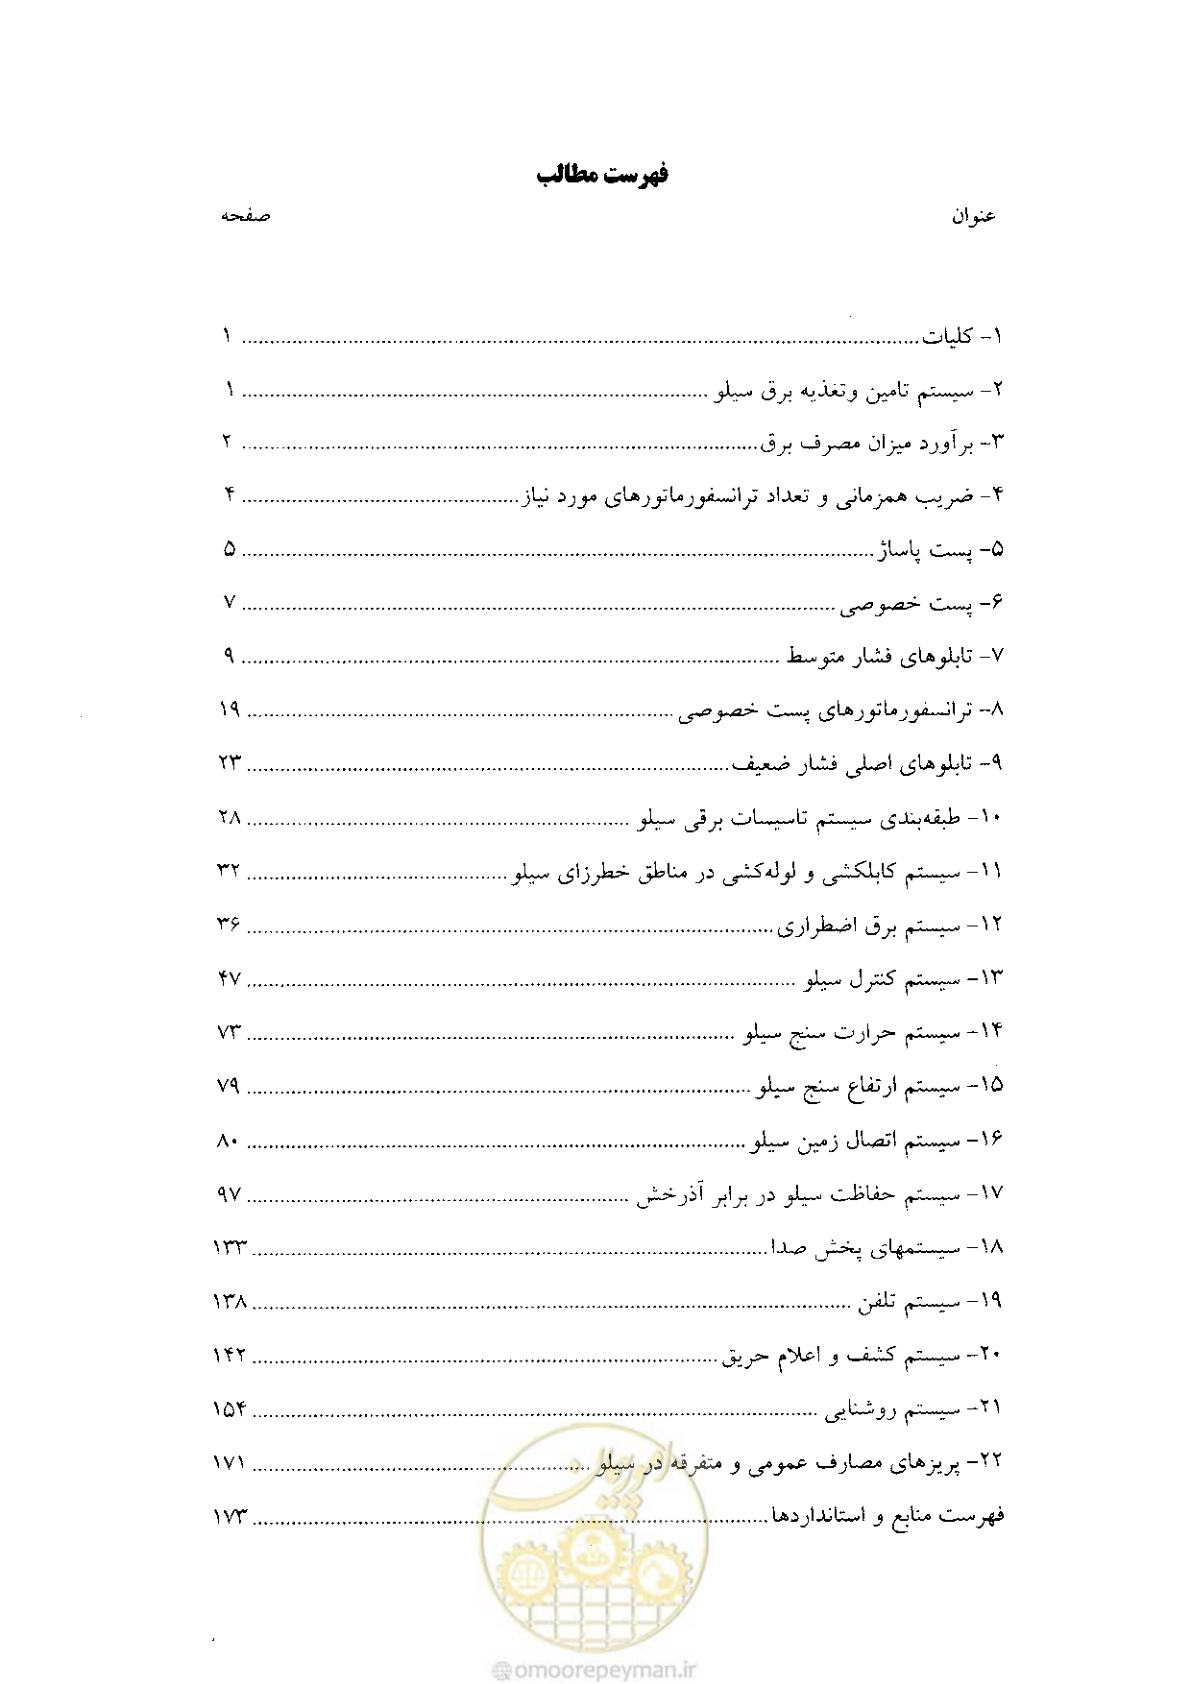 فهرست مطالب
عنوان صفحه
۱- کلیات ۱
۲- سیستم تامین وتغذیه برق سیلو ۱
۳- برآورد میزان مصرف برق ۲
۴- ضریب همزمانی و تعداد ترانسفورماتورهای مورد نیاز ۴
۵- پست پاساژ ۵
۶- پست خصوصی ۷
۷- تابلوهای فشار متوسط ۹
۸- ترانسفورماتورهای پست خصوصی ۱۹
۹- تابلوهای اصلی فشار ضعیف ۲۳
۱۰- طبقه‌بندی سیستم تاسیسات برقی سیلو ۲۸
۱۱- سیستم کابلکشی و لوله‌کشی در مناطق خطرزای سیلو ۳۲
۱۲- سیستم برق اضطراری ۳۶
۱۳- سیستم کنترل سیلو ۴۷
۱۴- سیستم حرارت سنج سیلو ۷۳
۱۵- سیستم ارتفاع سنج سیلو ۷۹
۱۶- سیستم اتصال زمین سیلو ۸۰
۱۷- سیستم حفاظت سیلو در برابر آذرخش ۹۷
۱۸- سیستمهای پخش صدا ۱۳۳
۱۹- سیستم تلفن ۱۳۸
۲۰- سیستم کشف و اعلام حریق ۱۴۲
۲۱- سیستم روشنایی ۱۵۴
۲۲- پریزهای مصارف عمومی و متفرقه در سیلو ۱۷۱
فهرست منابع و استانداردها ۱۷۳
امور پیمان
@omoorepeyman.ir